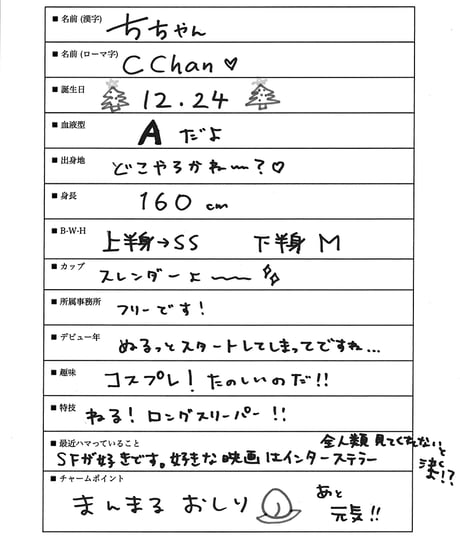 ■ 名前 (漢字) ちちゃん
■ 名前 (ローマ字) CChan♡
■ 誕生日 12.24
■ 血液型 A だよ
■ 出身地 どこやろかねー〜?♡
■ 身長 160 cm
■ B-W-H 上半身→SS 下半身 M
■ カップ スレンダーよ〜〜
■ 所属事務所 フリーです!
■ デビュー年 ぬるっとスタートしてしまってですね...
■ 趣味 コスプレ! たのしいのだ!!
■ 特技 ねる! ロングスリーパー!!
■ 最近ハマっていること 全人類 見てくれないと
SFが好きです。好きな映画はインターステラー 泣くよ!?
■ チャームポイント
まんまる おしり あと
元気!!